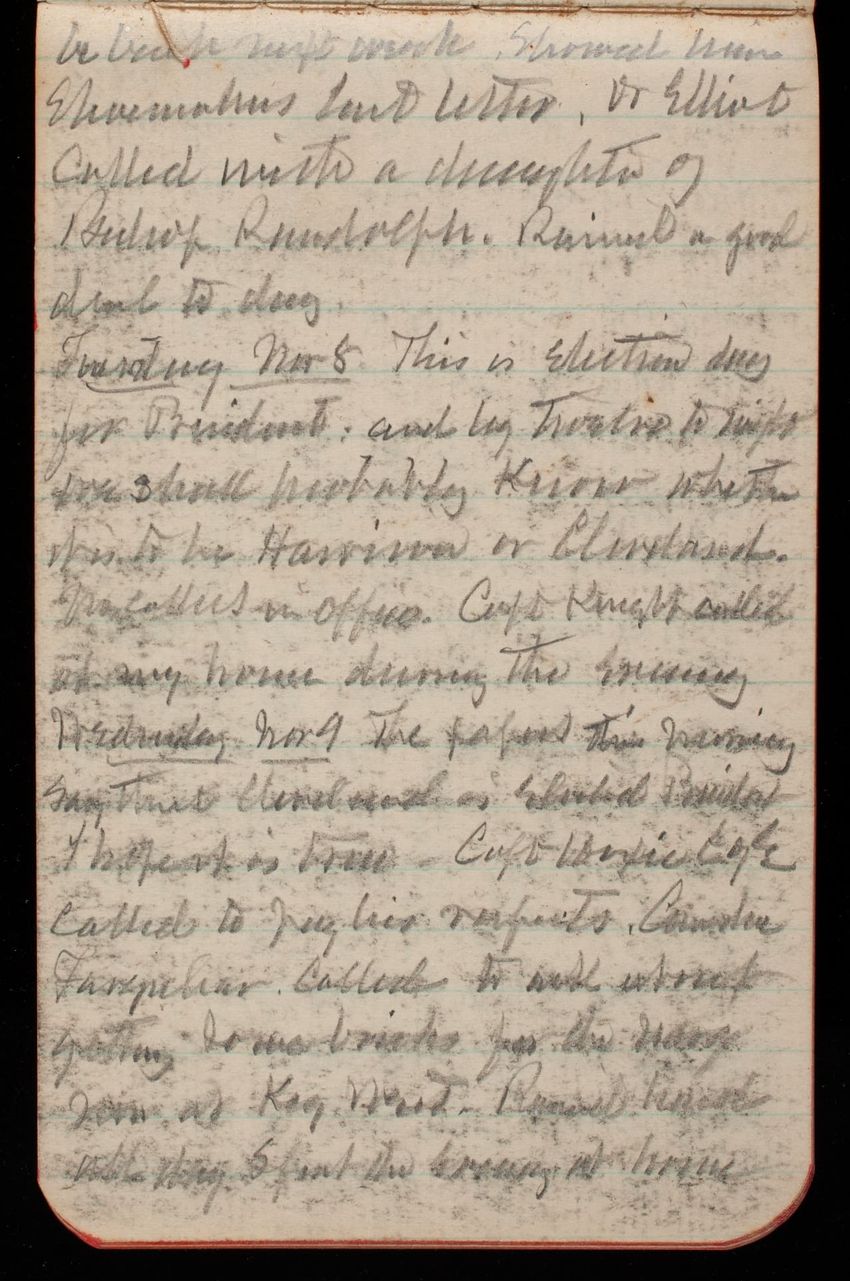 be back next week. Showed him
Shoemakers last letter, Dr Elliot
Called with a daughter of
Bishop Randolph. Rained a good
deal to day.
Tuesday Nov 8 This is Election day
for President. and by twelve to night
we shall probably Know whether
it is to be Harrison or Cleveland.
No callers in office. Capt Knight called
at my house during the Evening
Wednesday Nov 9 The papers this morning
say that Cleveland is Elected President
I hope it is true - Capt Hoxie C of E
Called to pay his respects.
Farquhar. Called to ask about
getting some bricks for the Navy
now at Key West. Rained hard
all day Spent the Evening at home